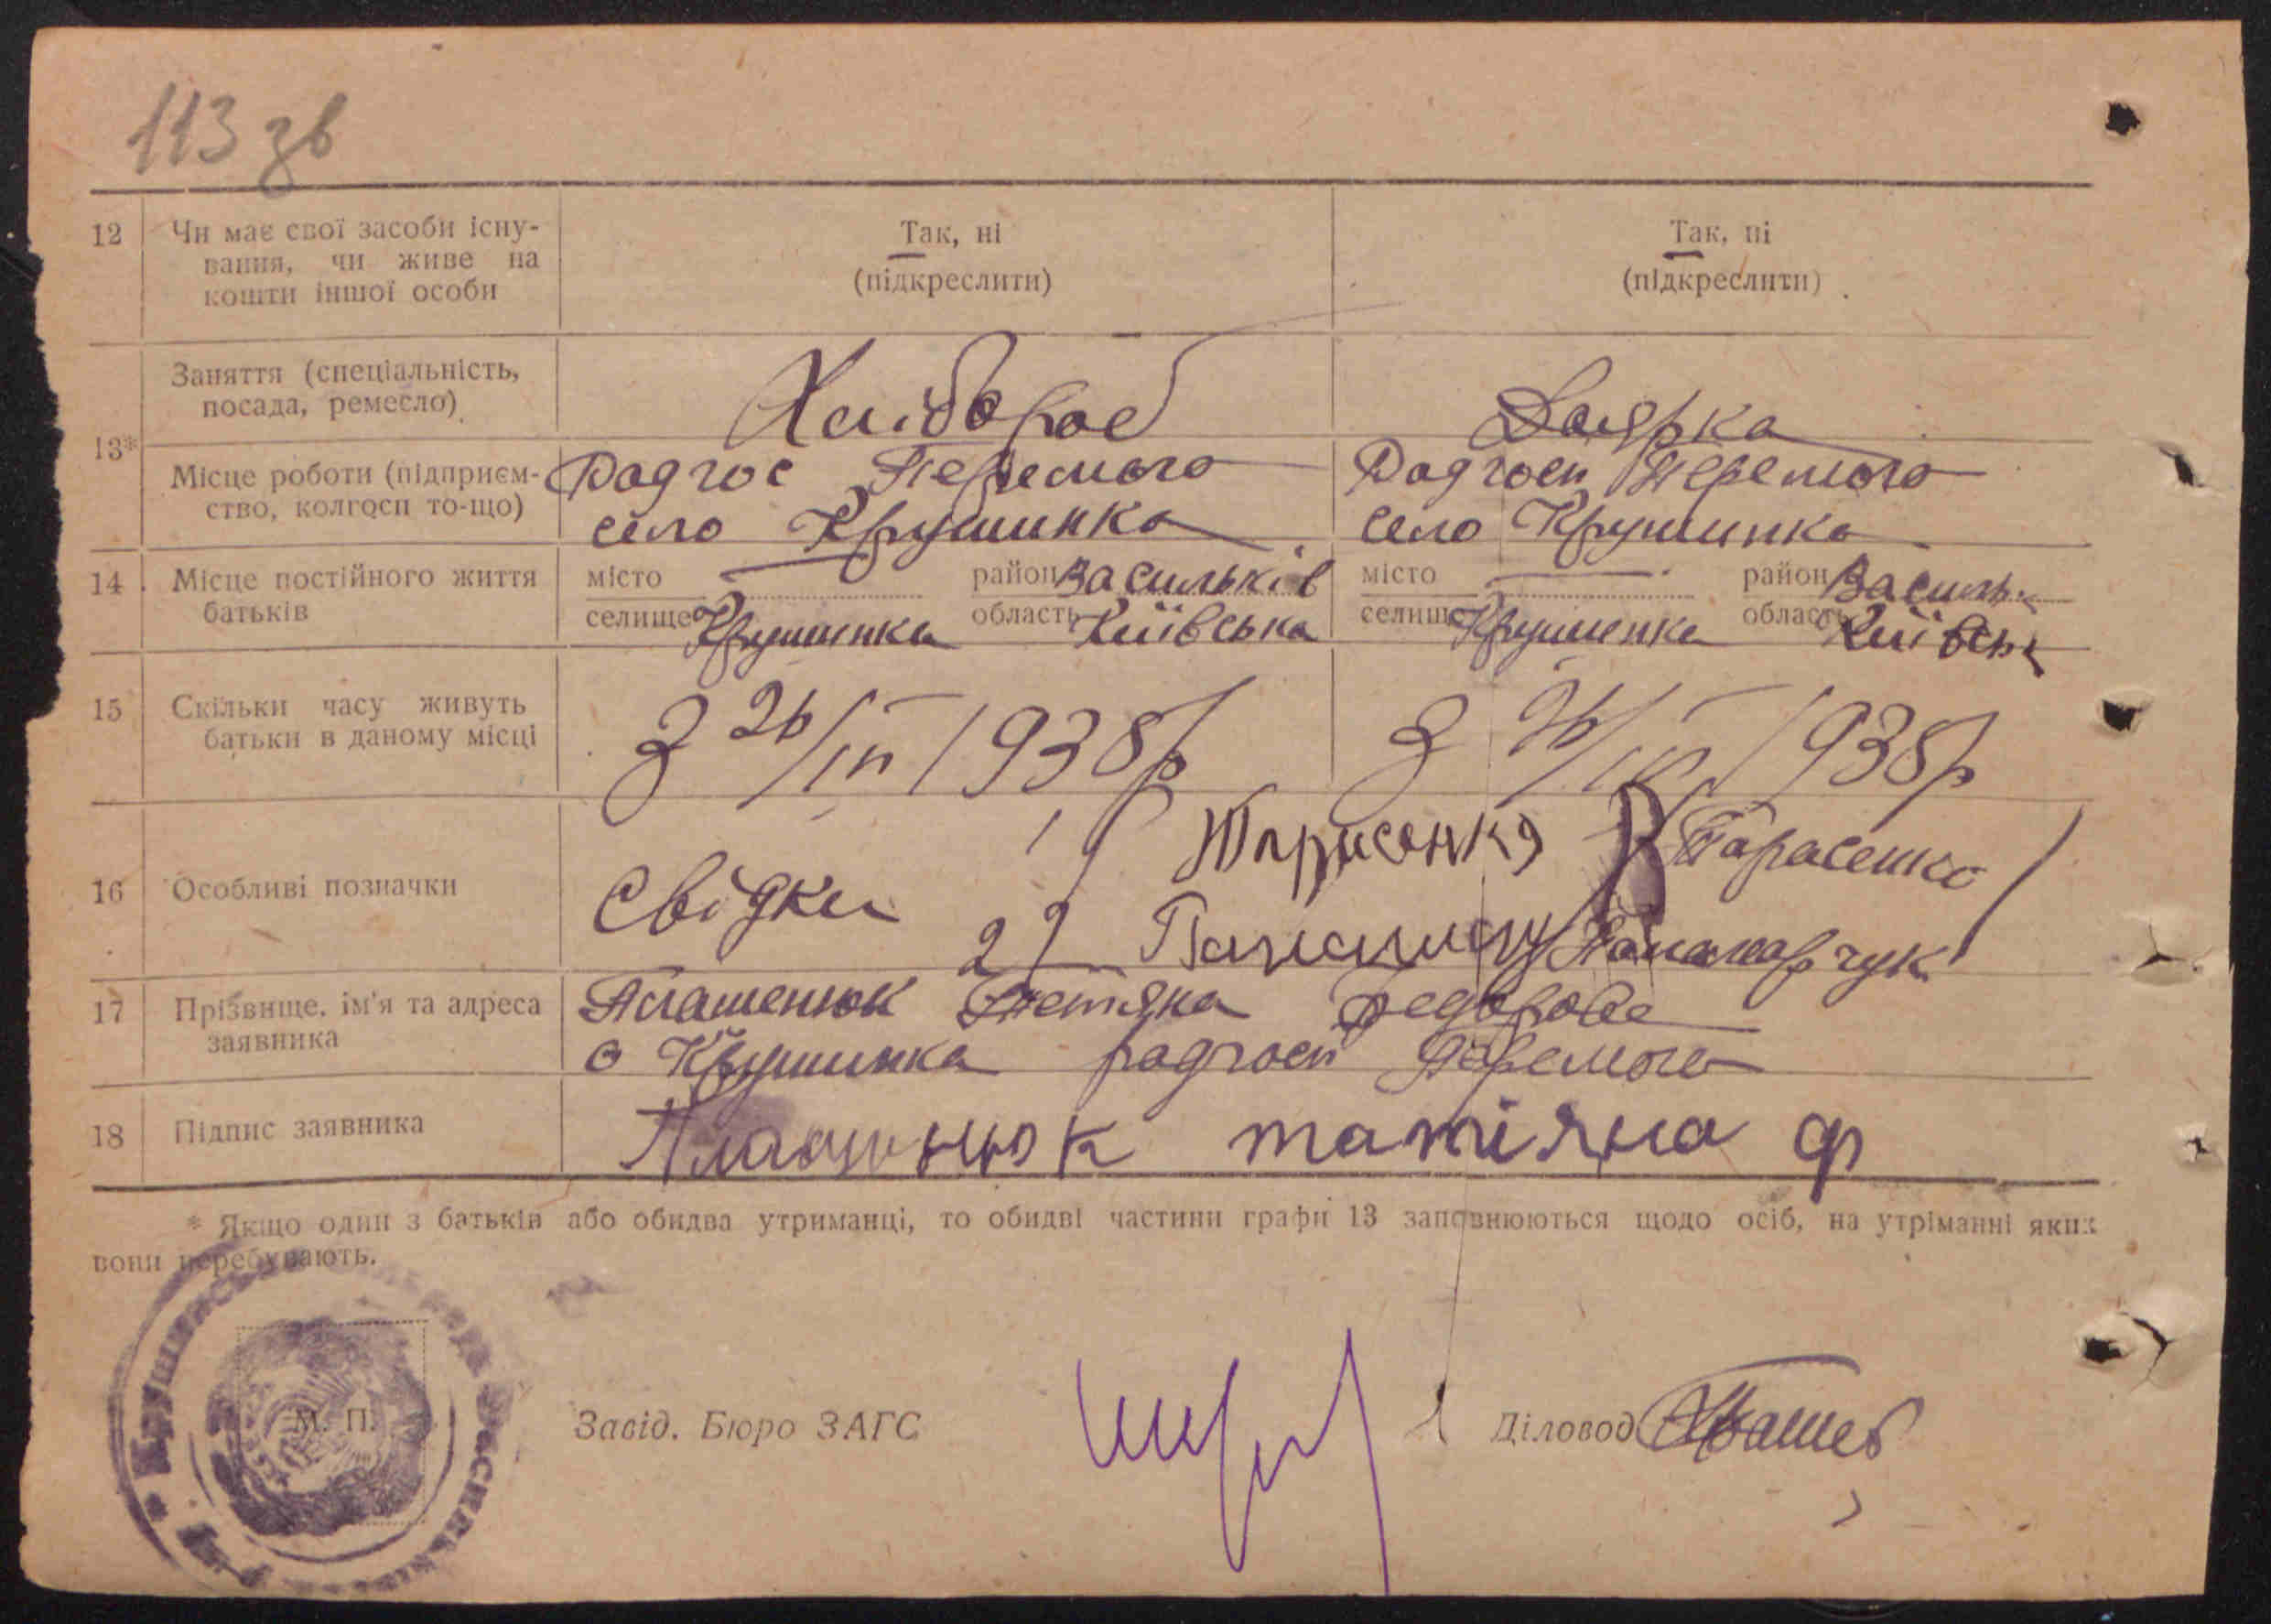 113 зв
12 Чи має свої засоби існу- Так, ні Так, ні
вання, чи живе на (підкреслити) (підкреслити)
кошти іншої особи
Заняття (спеціальність, Хлібороб Доярка
посада, ремесло)
13*
Місце роботи (підприєм- Радгос Перемога Радгосп Перемога
ство, колгосп то-що) село Крушинка село Крушинка
14 Місце постійного життя місто — район Васильків місто — район Василь
батьків селище Крушинка область Київська селище Крушинка область Київськ
15 Скільки часу живуть З 26/III 1938р З 26/III 1938р
батьки в даному місці
1) Тарасенко Тарасенко
16 Особливі позначки Свідки
2) Паламарчук
17 Прізвище, ім'я та адреса Плашенюк Тетяна Федорова
заявника с Крушинка радгосп Перемога
18 Підпис заявника татіяна ф
* Якщо один з батьків або обидва утриманці, то обидві частини графи 13 заповнюються щодо осіб, на утріманні яких
вони перебувають.
М. П.
Завід. Бюро ЗАГС Діловод